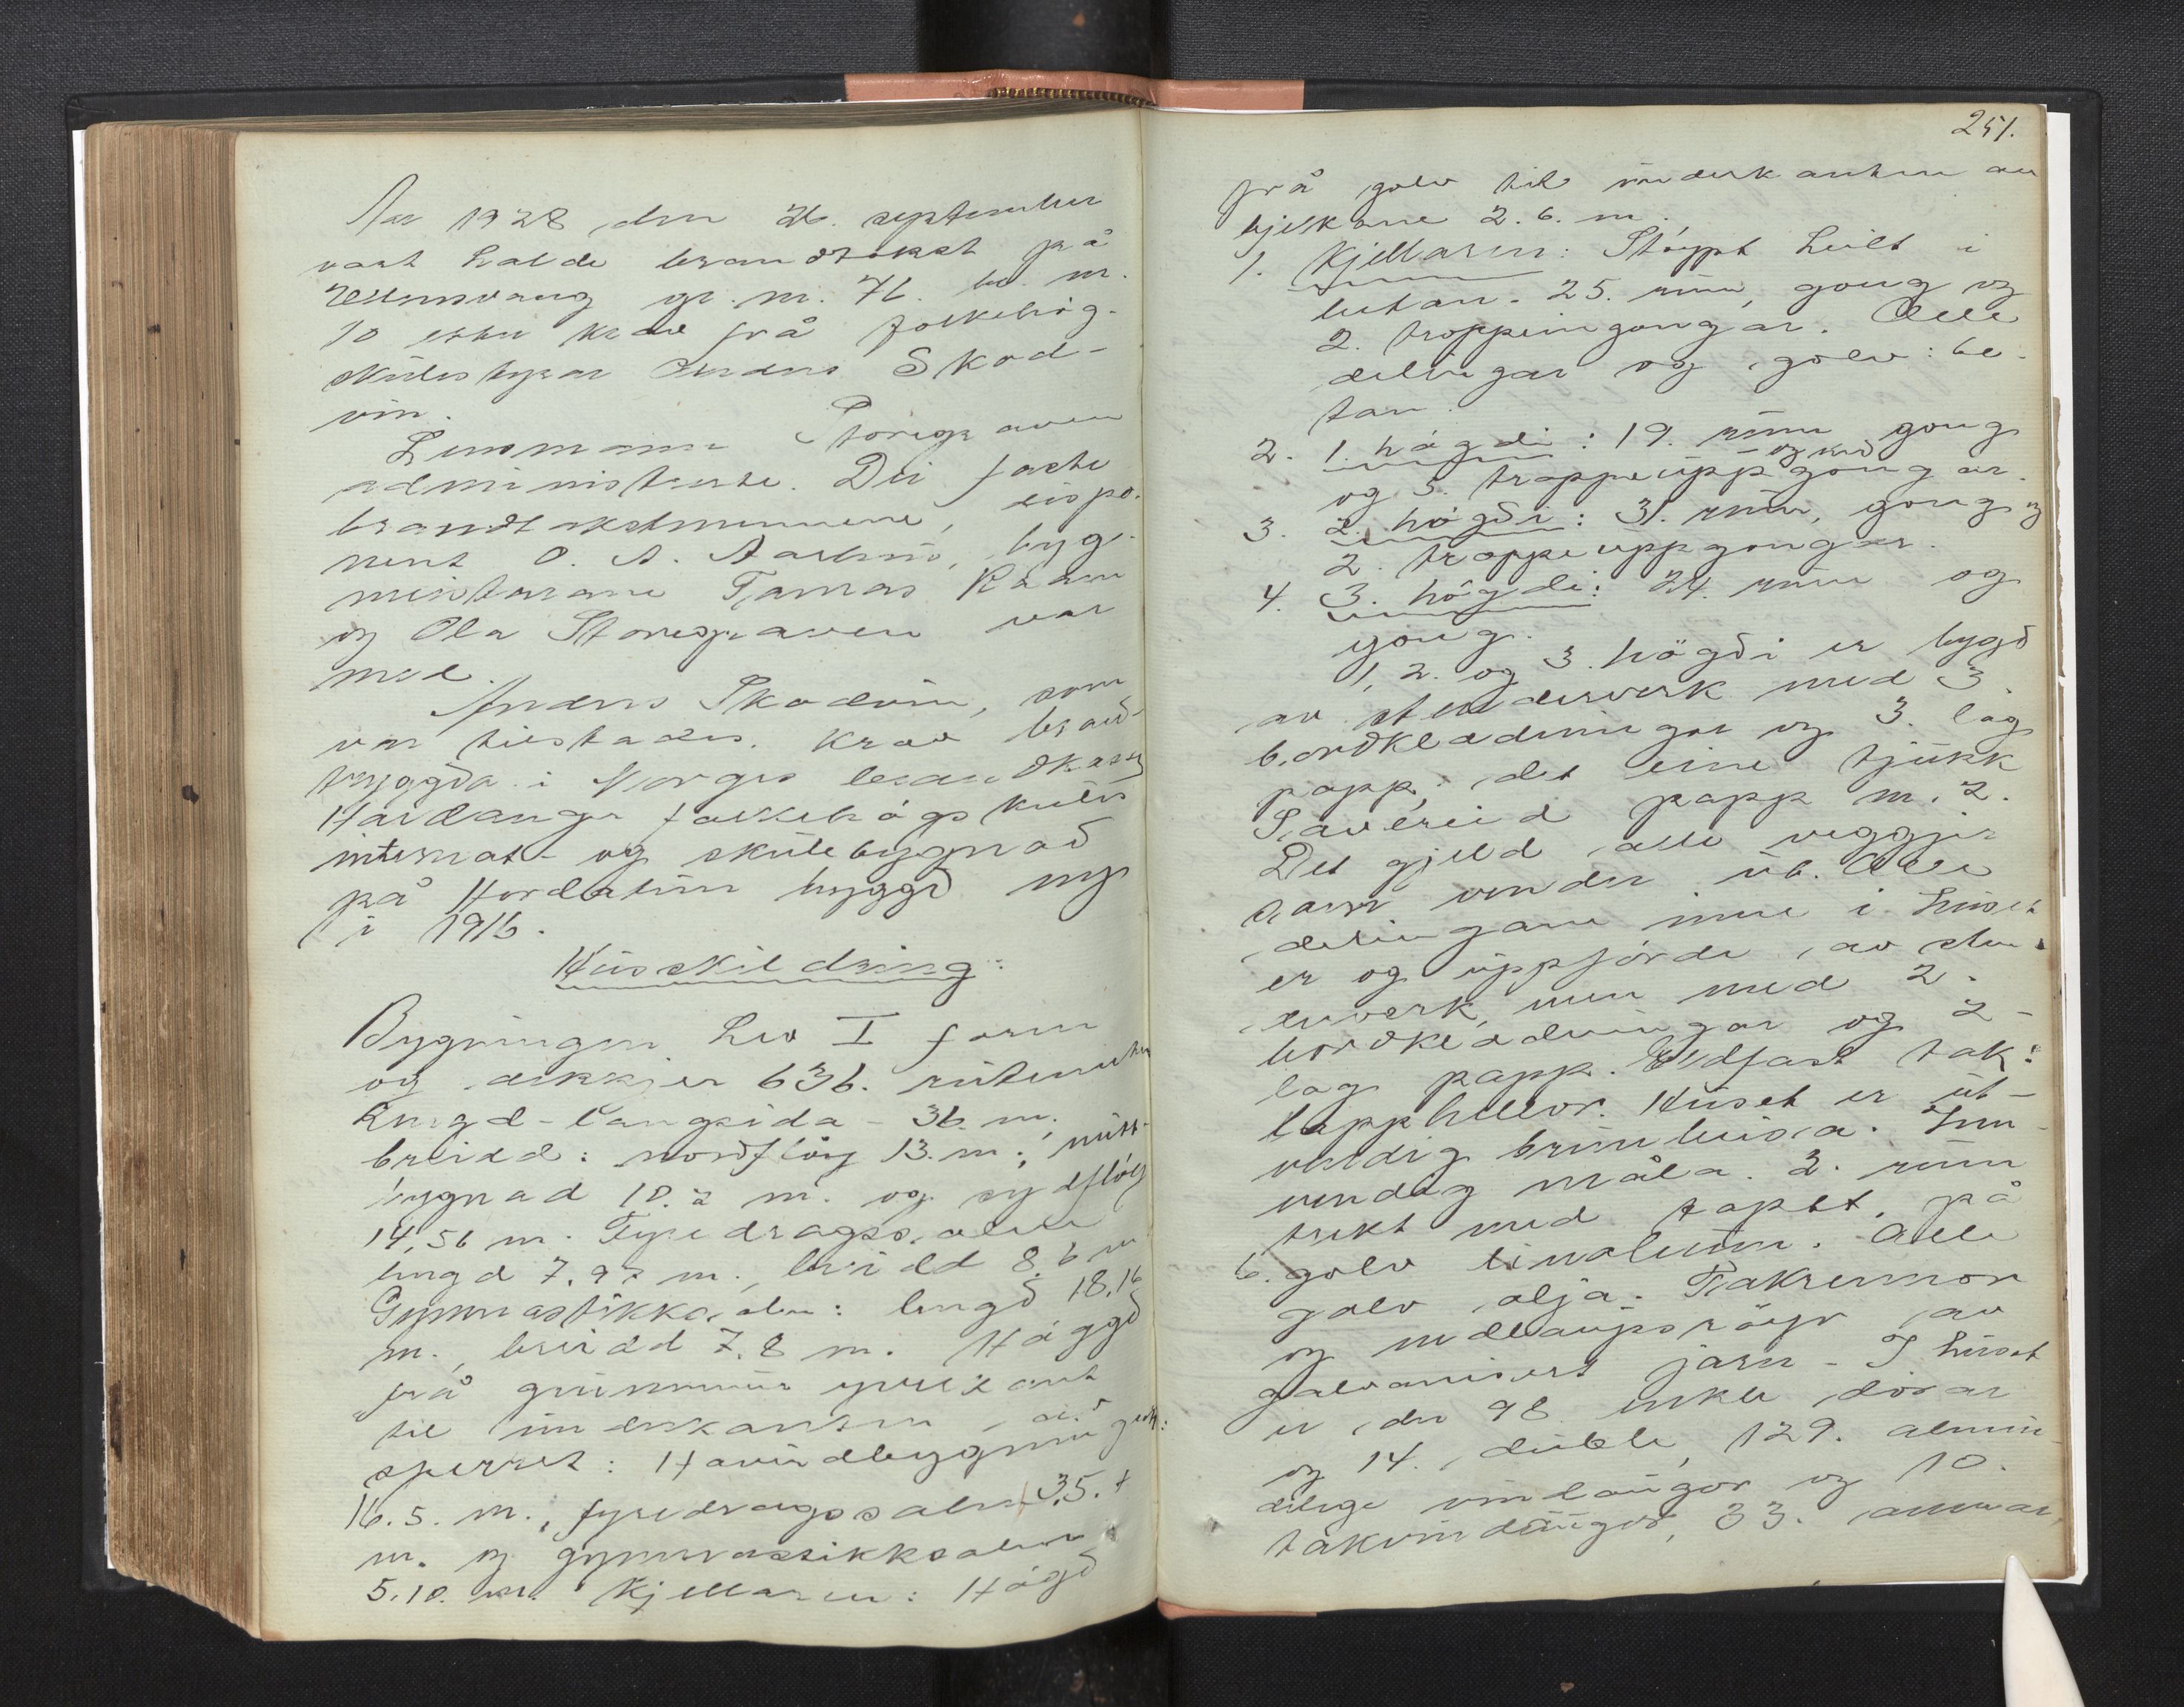 Aar 1928 den 26. september
vart halde brandtakst på
Ullensvang gr. nr. 76. br. nr.
10 etter krav frå folkehög-
skulestyrar Anders Skad-
vin.
Lensmann Storegraven
administrerte. Dei faste
brandtakstmennene, dispo-
nent O. A. Aarhus, byg-
meistarane Tomas Raam
og Ola Storegraven var
med.
Anders Skadvin, som
var tilstades, krav brand-
tryggda i Norges brandkassa
Hardanger folkehögskules
internat- og skulebygnad
på Hordatun byggd ny
i 1916.
Husskildring:
Bygningen hev I form
og dekkjer 636. rutemeter
Lengd-langsida - 36 m.
breidd: nordflöy 13. m; mitt-
bygnad 10.2 m. og sydflöy
14,56 m. Fyredragssalen
lengd 7.97 m., breidd 8.6 m
Gymnastikksalen: lengd 18.16
m., breidd 7.8 m. Högd
frå grunnmur yverkant
til underkanten av
sperret: Hovudbygningen:
16.5. m., fyredragssalen 3,5.
m. og gymnastikksalen
5.10. m. Kjellaren: Högd
251.
frå golv til underkanten av
bjelkane 2.6. m.
1. Kjellaren: Stöypt heilt i
betan. 25. rum, gong og
2. troppeingongar. Alle
delingar og golv: be-
tan.
2. 1. högdi: 19. rum gong
og 3. trappeuppgongar.
3. 2. högdi: 31. rum, gong og
2. trappeuppgongar.
4. 3. högdi: 24. rum og
gong.
1, 2. og 3. högdi er bygd
av stenderverk med 3
bordklædningar og 3. lag
papp; det eine tjukk
papp nr. 2.
Det gjeld alle veggjer
som vender ut. Alle
delingane inne i huset
er og uppförde av sten-
derverk, men med 2.
bordklædningar og 2-
lag papp. Eldfast tak:
lapphellor. Huset er ut-
vendig brunbeisa. Inn-
vendig måla. 2. rum
trekt med tapet. på
6. golv linoleum. Alle
golv olja. Takrennor
og nedlaupsröyr av
galvanisert jarn - I huset
er der 98 enkle dörar
og 14. duble, 129. almin-
delege vindaugor og 10.
takvindaugor, 33.